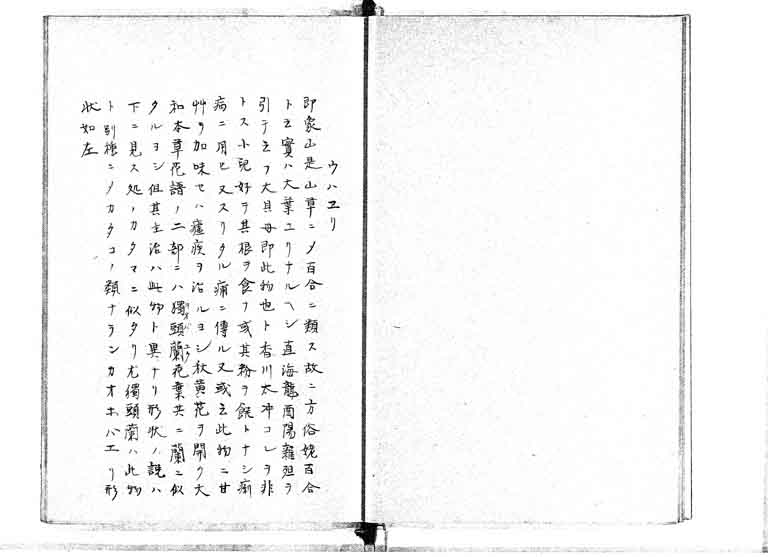 ウハユリ
即家山是山草ニメ百合ニ類ス故ニ方俗姥百合
ト云實ハ大葉ユリナルヘシ直海龍酉陽雜俎ヲ
引テ云フ大貝母即此物也ト香川太冲コレヲ非
トス小兒好テ其根ヲ食フ或其粉ヲ餻トナシ痢
病ニ用已又スリタル痛ニ傳ル又或云此物ニ甘
艸ヲ加味セハ瘧疾ヲ治ルヨシ秋黄花ヲ開ク大
和本草花譜ノ二部ニハ獨頭蘭花葉共ニ蘭ニ似
タルヨシ但其主治ハ此物ト異ナリ形状ノ説ハ
下ニ見ス処ノカタマニ似タリ尤獨頭蘭ハ此物
ト別種ニメカタコノ類ナランカオホバエリ形
状如左